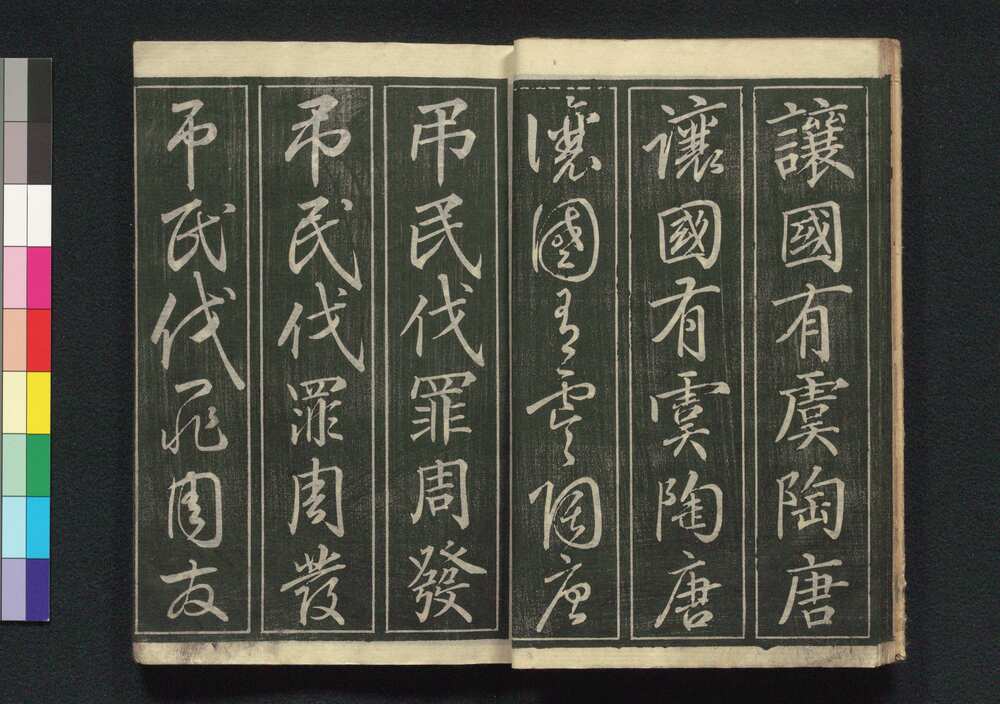 讓國有虞陶唐
讓國有虞陶唐
讓國有虞陶唐
弔民伐罪周發
弔民伐罪周發
弔民伐罪周發